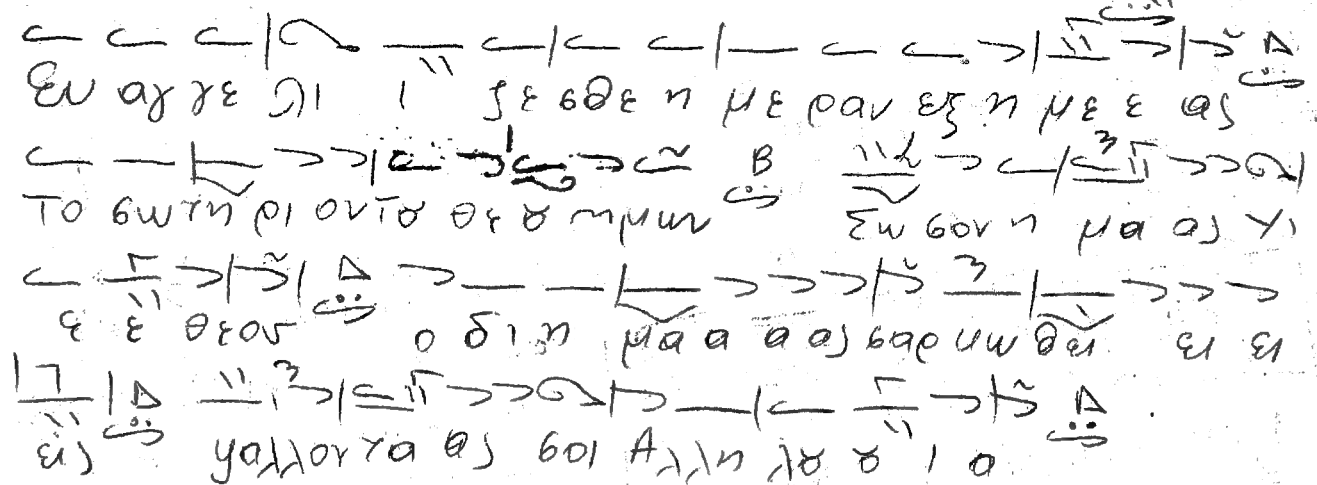 Ευ αγ γε λι ι ζε σθε η με ραν εξ η με ε ας
Το σωτη ρι ον του θε ου ημων Σω σον η μα ας Υι
ε ε θεου ο δι η μα α α ας σαρκω θει ει ει
εις ψαλλοντα ας σοι Αλλη λου ου ι α